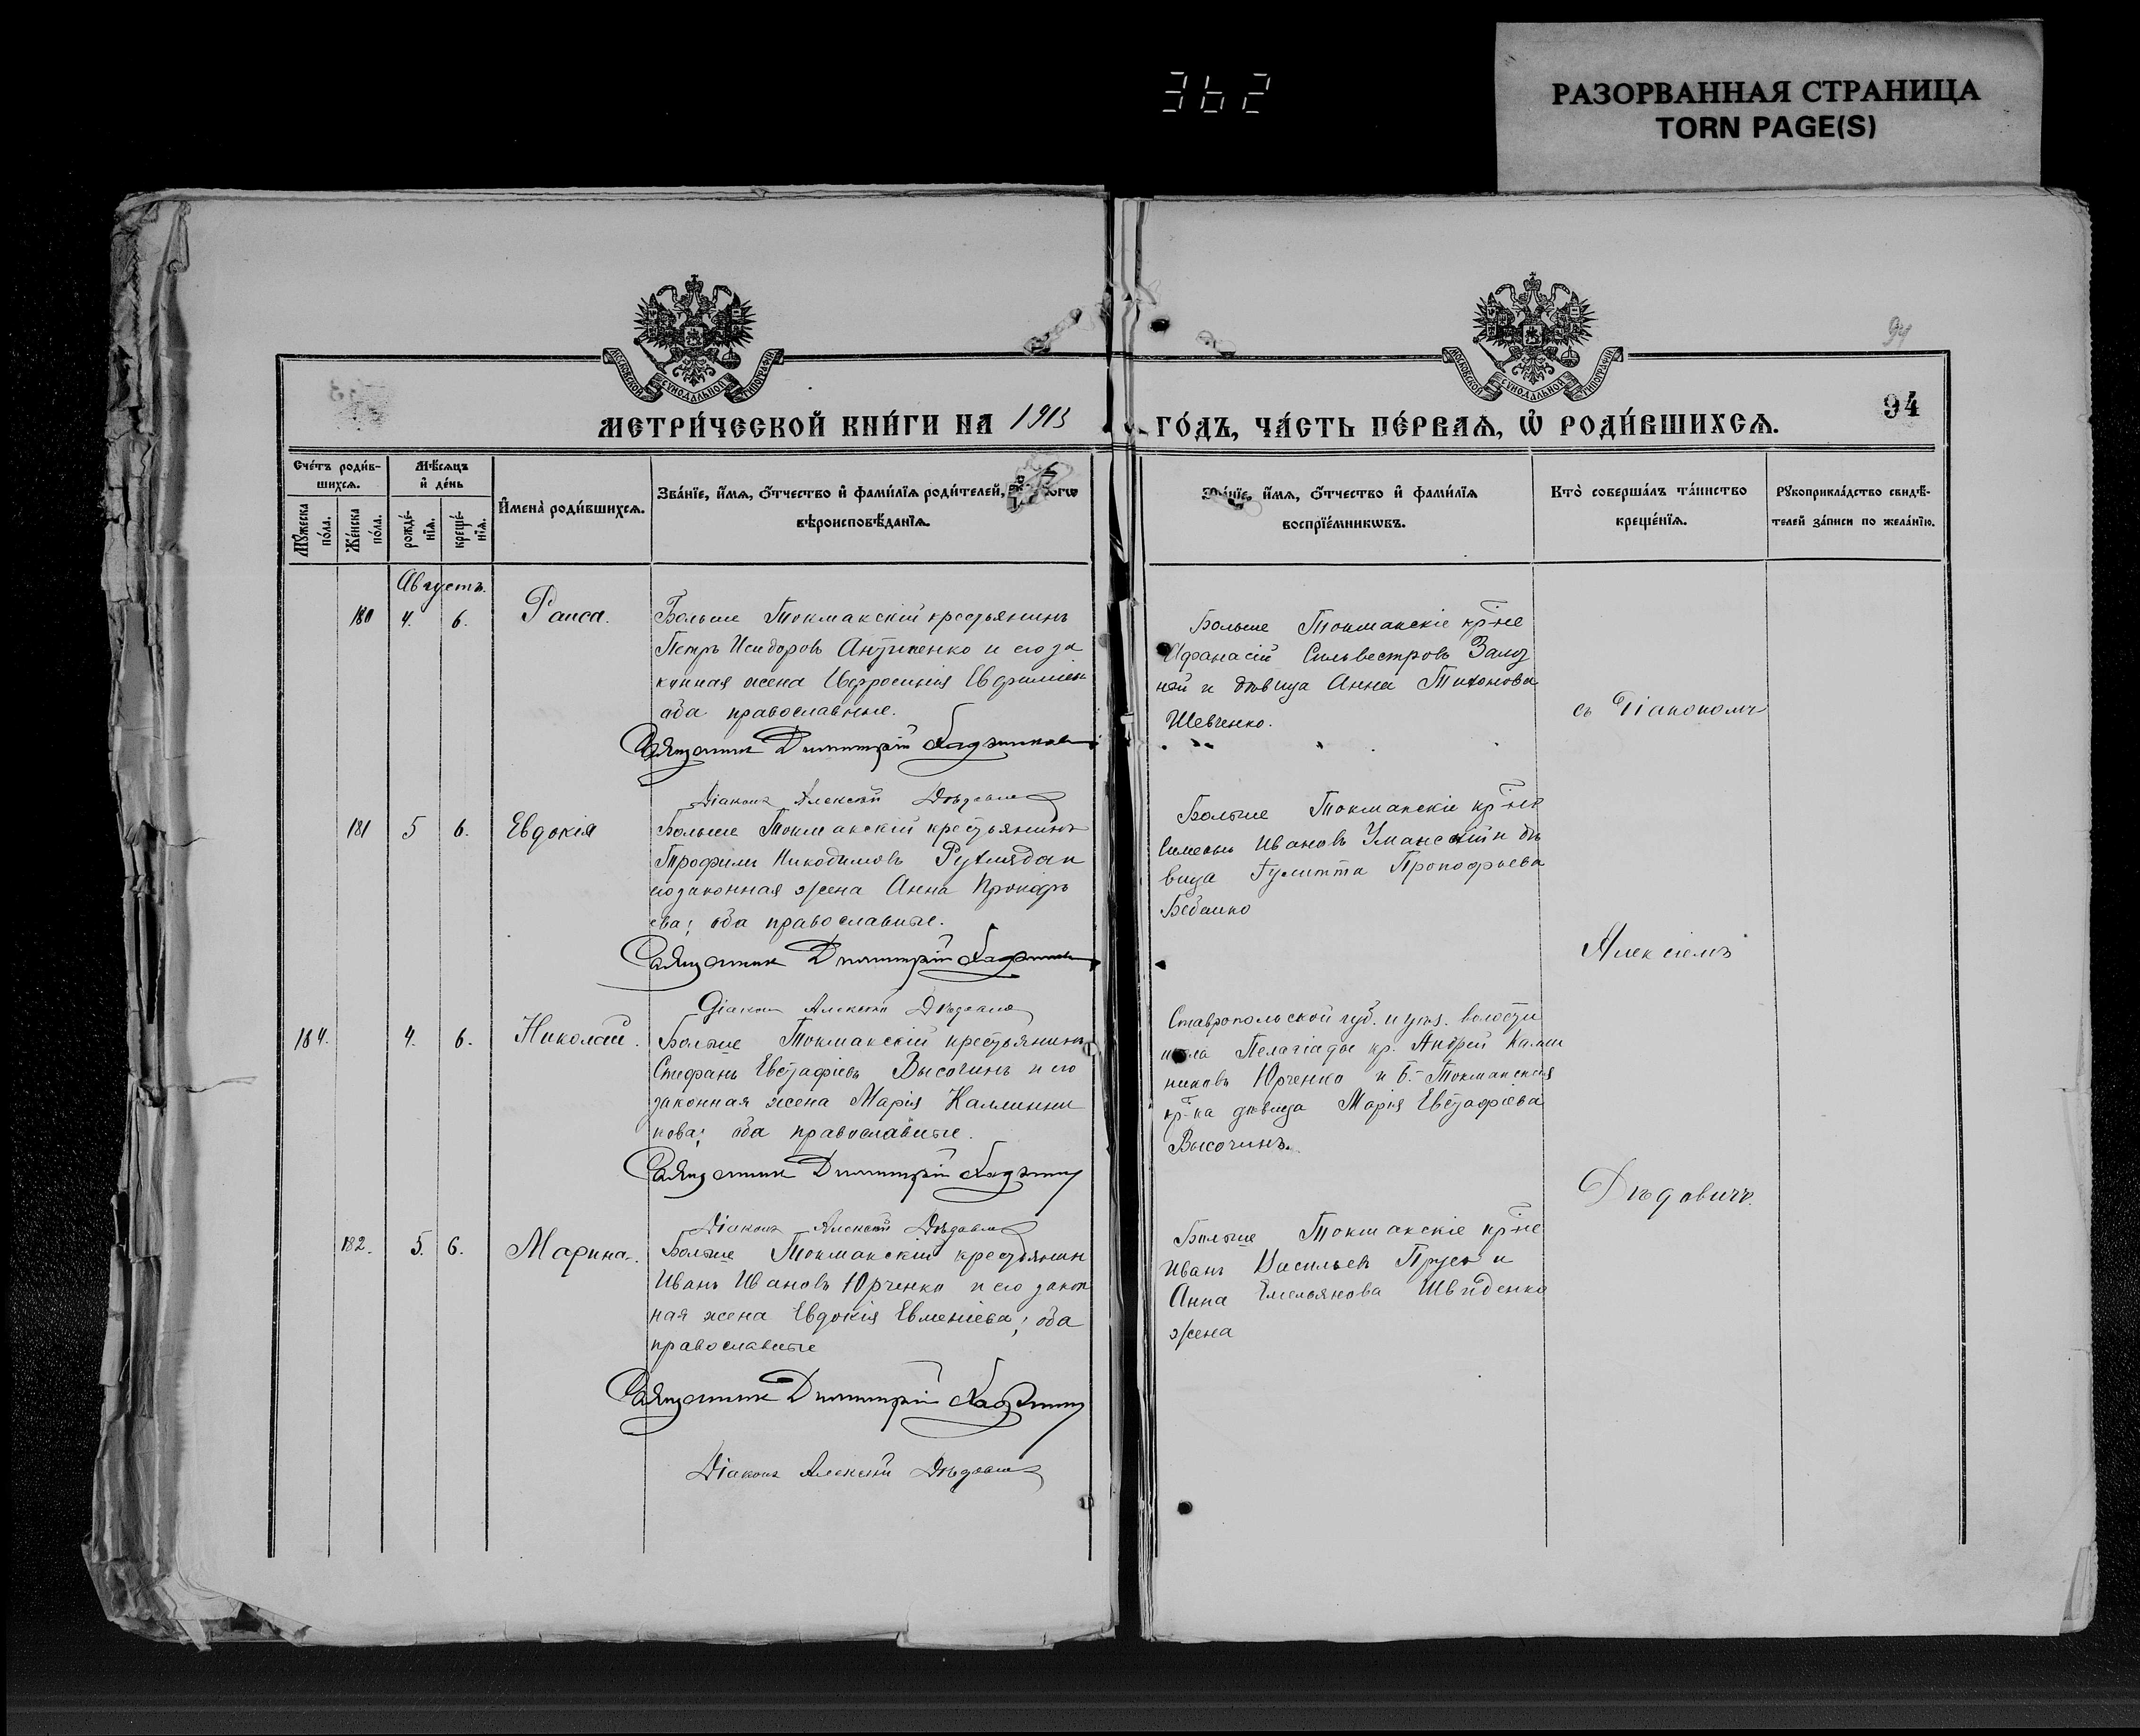 362
РАЗОРВАННАЯ СТРАНИЦА
TORN PAGE(S)
94
МОСКОВСКОЙ СУНОДАЛЬНОЙ ТИПОГРАФІИ
МОСКОВСКОЙ СУНОДАЛЬНОЙ ТИПОГРАФІИ
94
МЕТРИ́ЧЕСКОЙ КНИ́ГИ НА 1913 ГО́ДЪ, ЧА́СТЬ ПЕ́РВАѦ, Ѡ҆ РОДИ́ВШИХСѦ.
Сче́тъ роди́в-
шихсѧ.
Мꙋ́жеска по́ла.
Же́нска по́ла.
Мѣ́сѧцъ и҆ де́нь
рожде́-нїѧ.
креще́-нїѧ.
И҆мена̀ роди́вшихсѧ.
Зва́нїе, и҆́мѧ, ѻ҆́тчество и҆ фами́лїѧ роди́телей,
вѣроисповѣ́данїѧ.
Зва́нїе, и҆́мѧ, ѻ҆́тчество и҆ фами́лїѧ
воспрїе́мникѡвъ.
Кто̀ соверша́лъ та́инство
креще́нїѧ.
Рꙋкоприкла́дство свидѣ́-
телей за́писи по жела́нїю.
Августъ.
180 4. 6. Раиса.
Больше Токмакскій крестьянинъ
Петръ Исидоровъ Антипенко и его за
конная жена Евфросинія
оба православные.
Священник Димитрій
Діаконъ Алексѣй Дѣдович
Больше Токмакскіе кр-не
Афанасій Сильвестровъ Залоз
ной и дѣвица Анна Тихонова
Шевченко.
съ Діакономъ
181 5 6. Евдокія
Больше Токмакскій крестьянинъ
Трофимъ Никодимовъ
его законная жена Анна Прокофь
ева; оба православные.
Священник Димитрій
Діаконъ Алексѣй Дѣдович
Больше Токмакскіе кр-не
Симеонъ Ивановъ Уманскій и дѣ
вица Іулитта Прокофьева
Алексіемъ
184. 4. 6. Николай.
Больше Токмакскій крестьянинъ
Стефанъ Евстафіевъ Высочинъ и его
законная жена Марія Каллинни
кова; оба православные.
Священник Димитрій
Діаконъ Алексѣй Дѣдович
Ставропольской губ. и уѣз. волости
села Пелагіады кр. Андрей Калин
никовъ Юрченко и Б. Токмакская
кр-ка дѣвица Марія Евстафіева
Высочинъ.
Дѣдовичъ.
182. 5. 6. Марина.
Больше Токмакскій крестьянин
Иванъ Ивановъ Юрченко и его закон
ная жена Евдокія Евменіева; оба
православные
Священник Димитрій
Діаконъ Алексѣй Дѣдович
Больше Токмакскіе кр-не
Иванъ Васильевъ Прусъ и
Анна Емельянова Швиденко
жена